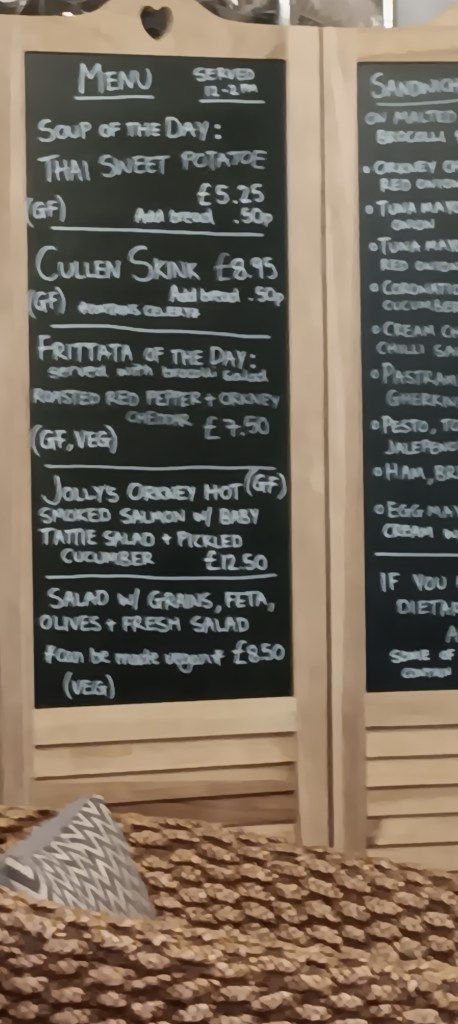 MENU
SERVED
12-2PM
SOUP OF THE DAY:
THAI SWEET POTATOE
£5.25
(GF) Add bread .50p
CULLEN SKINK £8.95
(GF) Add bread .50p
*CONTAINS CELERY*
FRITTATA OF THE DAY:
served with brocolli salad
ROASTED RED PEPPER + ORKNEY
CHEDDAR £7.50
(GF, VEG)
JOLLY'S ORKNEY HOT (GF)
SMOKED SALMON W/ BABY
TATTIE SALAD + PICKLED
CUCUMBER £12.50
SALAD W/ GRAINS, FETA,
OLIVES + FRESH SALAD
*can be made vegan* £8.50
(VEG)
SANDWICH
ON MALTED
BROCOLLI
• ORKNEY
RED ONION
• TUNA MAYO
ONION
• TUNA MAY
RED ONION
• CORONATIO
CUCUMBER
• CREAM CH
CHILLI
• PASTRAM
GHERKIN
• PESTO, TO
JALEPENO
• HAM, BR
• EGG MAY
CREAM W
IF YOU
DIETAR
A
SOME OF
CONTAIN